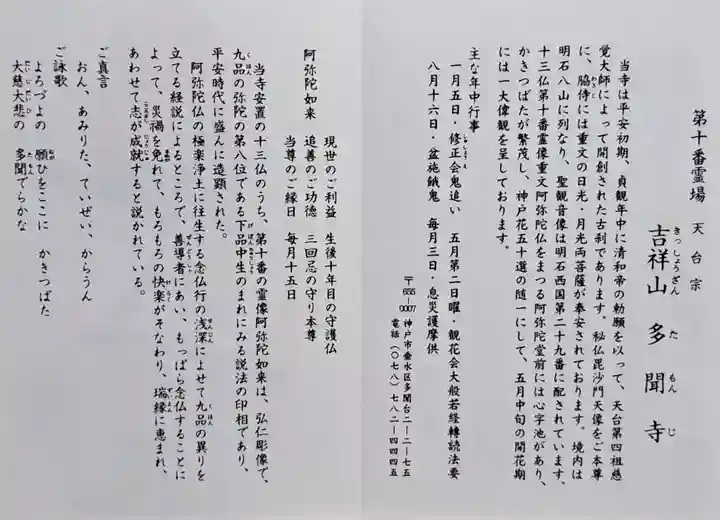 第十番霊場 天台宗
吉祥山 多聞寺
当寺は平安初期、貞観年中に清和帝の勅願を以って、天台第四祖慈
覚大師によって開創された古刹であります。秘仏毘沙門天像をご本尊
に、脇侍には重文の日光・月光両菩薩が奉安されております。境内は
明石八山に列なり、聖観音像は明石西国第二十九番に配されています。
十三仏第十番霊像重文阿弥陀仏をまつる阿弥陀堂前には心字池があり、
かきつばたが繁茂し、神戸花五十選の随一にして、五月中旬の開花期
には一大偉観を呈しております。
主な年中行事
一月五日・修正会鬼追い 五月第二日曜・観花会大般若経轉読法要
八月十六日・盆施餓鬼 毎月三日・息災護摩供
〒655-0007 神戸市垂水区多聞台二-二-七五
電話(〇七八)七八二-四四四五
現世のご利益 生後十年目の守護仏
阿弥陀如来 追善のご功徳 三回忌の守り本尊
当尊のご縁日 毎月十五日
当寺安置の十三仏のうち、第十番の霊像阿弥陀如来は、弘仁彫像で、
九品の弥陀の第八位である下品中生のまれにみる説法の印相であり、
平安時代に盛んに造顕された。
阿弥陀仏の極楽浄土に往生する念仏行の浅深によせて九品の異りを
立てる経説によるところで、善導者にあい、もっぱら念仏することに
よって、災禍を免れて、もろもろの快楽がそなわり、瑞縁に恵まれ、
あわせて志が成就すると説かれている。
ご真言
おん、あみりた、ていぜい、からうん
ご詠歌
よろづよの 願ひをここに かきつばた
大慈大悲の 多聞でらかな